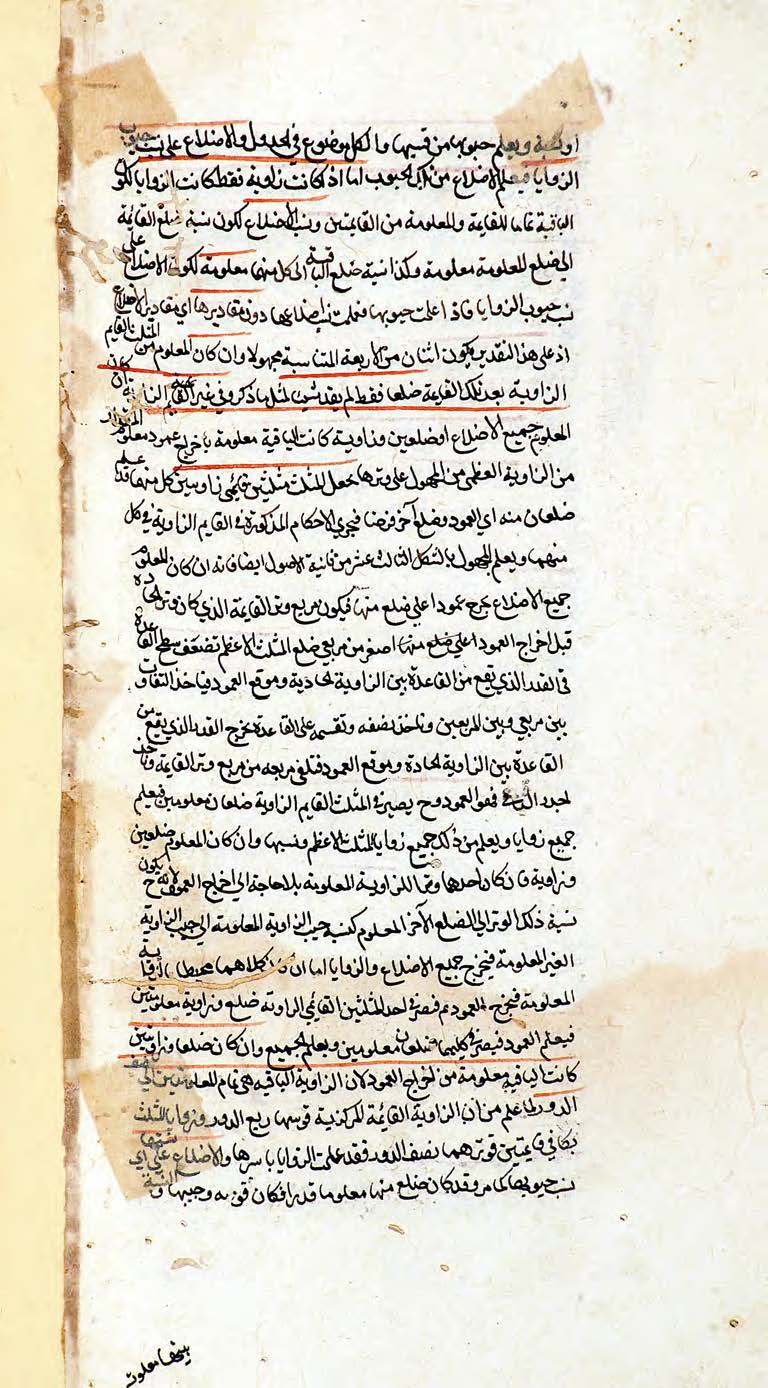 او نسبة ويعلم جيوبها من قسيها والكل موضوع في الجدول والاضلاع على نسب جيوب
الزوايا فيعلم الاضلاع من تلك الجيوب اما اذا كانت زاوية فقط كانت الزوايا لكون
الباقية تماما للقايمة والمعلومة من القايمتين ونسب الاضلاع لكون نسبة ضلع القائمة
الى ضلع المعلومة معلومة وكذا نسبة ضلع الباقية الى كل منهما معلومة لكون الاضلاع على
نسب جيوب الزوايا فاذا علمت جيوبها فعلمت نسب اضلاعها دون مقاديرها اي مقادير الاضلاع
اذ على هذا التقدير يكون اثنان من الاربعة المتناسبة مجهولا وان كان المعلوم من المثلث القايم
الزاوية بعد تلك القايمة ضلعا فقط لم يفد شئ لمثل ما ذكر وفي غير القايم الزاوية ان كان
المعلوم جميع الاضلاع او ضلعين وزاوية كانت الباقية معلومة باخراج عمود معلوم المقدار
من الزاوية العظمى من المجهول على وترها جعل المثلث مثلثين قايمي زاويتين كل منهما قد علم
ضلعان منه اي العمود وضلع آخر فرضا فيجري الاحكام المذكورة في القايم الزاوية في كل
منهما ويعلم المجهول بالشكل الثالث عشر من ثانية الاصول ايضا فانه ان كان المعلوم
جميع الاضلاع نخرج عمودا على ضلع منها فيكون مربع وتر القايمة الذي كان وتر الحادة
قبل اخراج العمود على ضلع منها اصغر من مربعي ضلع المثلث الاعظم بضعف سطح القاعدة
في القدر الذي يقع من القاعدة بين الزاوية الحادية وموقع العمود فناخذ التفاوت
بين مربعي وبين المربعين وناخذ نصفه ونقسمه على القاعدة يخرج القدر الذي يقع من
القاعدة بين الزاوية الحادة وموقع العمود فنلقي مربعه من مربع وتر القايمة وناخذ
لجذر الباقي فهو العمود وح يصير في المثلث القايم الزاوية ضلعان معلومين فيعلم
جميع زوايا ويعلم من ذلك جميع زوايا المثلث الاعظم ونسبها وان كان المعلوم ضلعين
وزاوية فان كان احدهما وتر اللزاوية المعلومة بلا حاجة الى اخراج العمود لانه ح يكون
نسبة ذلك الوتر الى الضلع الآخر المعلوم كنسبة جيب الزاوية المعلومة الى جيب الزاوية
الغير المعلومة فيخرج جميع الاضلاع والزوايا اما ان كلاهما محيطا بالزاوية
المعلومة فيخرج العمود ثم فيصر في احد المثلثين القائمي الزاوية ضلع وزاوية معلومتين
فيعلم العمود فيصر في كليهما ضلعان معلومين ويعلم الجميع وان كان ضلعا وزاويتين
كانت الباقية معلومة من اخراج العمود لان الزاوية الباقيه هي تمام المعلومتين الى نصف
الدور لما علم من ان الزاوية القائمة المركزية قوسها ربع الدور وزوايا المثلث
يكافي قايمتين قوترهما نصف الدور فقد علمت الزوايا باسرها والاضلاع على نسبتها اي
نسب جيوبها كما مر وقد كان ضلع منها معلوما قدرا فكان قوته وجيبها والنسبة
بينها معلومة